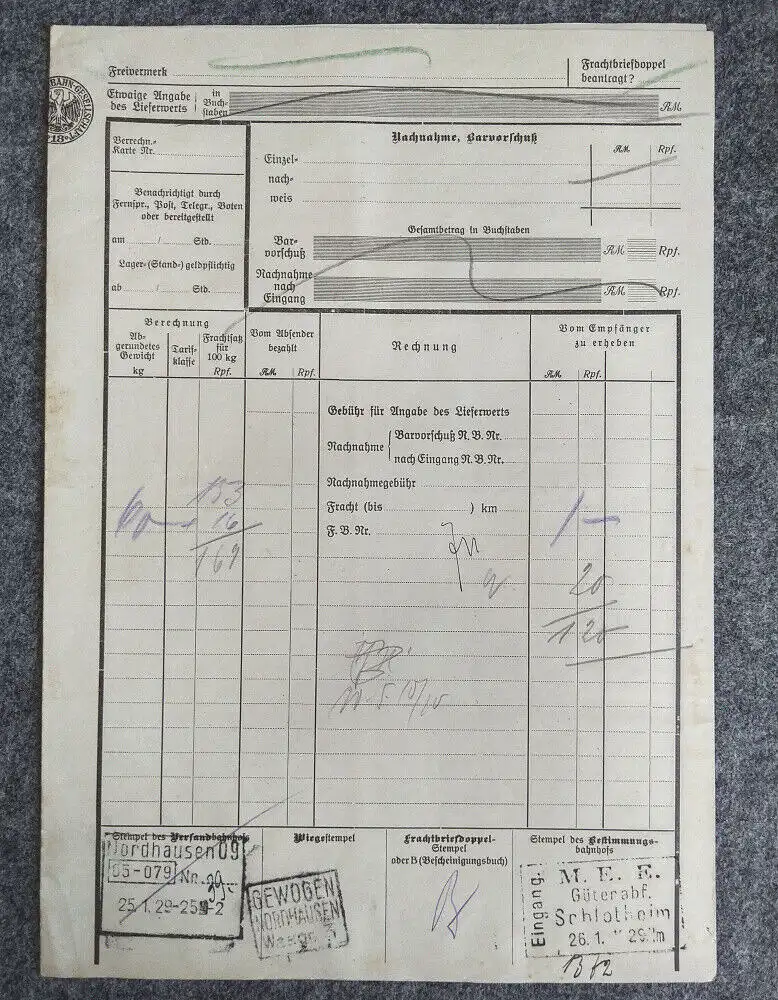 Freivermerk
Frachtbriefdoppel
beantragt?
BAHN-GESELLSCHAFT
18
Etwaige Angabe
des Lieferwerts
in
Buch-
staben
RM
Berechn.-
Karte Nr.
Nachnahme, Barvorschuß
RM. Rpf.
Einzel-
nach-
weis
Benachrichtigt durch
Fernspr., Post, Telegr., Boten
oder bereitgestellt
am / Stb.
Lager-(Stand-) geldpflichtig
ab / Stb.
Gesamtbetrag in Buchstaben
Bar-
vorschuß
RM Rpf.
Nachnahme
nach
Eingang
RM Rpf.
Berechnung
Ab-
gerundetes
Gewicht
kg
Tarif-
klasse
Frachtsatz
für
100 kg
Rpf.
Vom Absender
bezahlt
RM. Rpf.
Rechnung
Vom Empfänger
zu erheben
RM. Rpf.
Gebühr für Angabe des Lieferwerts
Nachnahme
Barvorschuß N. B. Nr.
nach Eingang N. B. Nr.
Nachnahmegebühr
Fracht (bis ) km
F. B. Nr.
153
60 16
169
1 —
20
1 20
Stempel des Versandbahnhofs
Nordhausen 09
05-079 Nr.
25.1.29-25
Wiegestempel
GEWOGEN
NORDHAUSEN
Frachtbriefdoppel-
Stempel
oder B (Bescheinigungsbuch)
B
Stempel des Bestimmungs-
bahnhofs
Eingang.
M. E. E.
Güterabf.
Schlotheim
26.1. 29